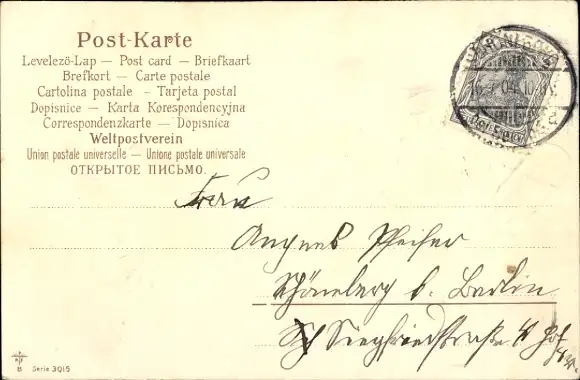 Post-Karte
Levelező-Lap — Post card — Briefkaart
Brefkort — Carte postale
Cartolina postale — Tarjeta postal
Dopisnice — Karta Korespondencyjna
Correspondenzkarte — Dopisnica
Weltpostverein
Union postale universelle — Unione postale universale
ОТКРЫТОЕ ПИСЬМО.
Frau
Pfeifer
Schöneberg b. Berlin
Siegfriedstraße 4 Hof
B Serie 3015